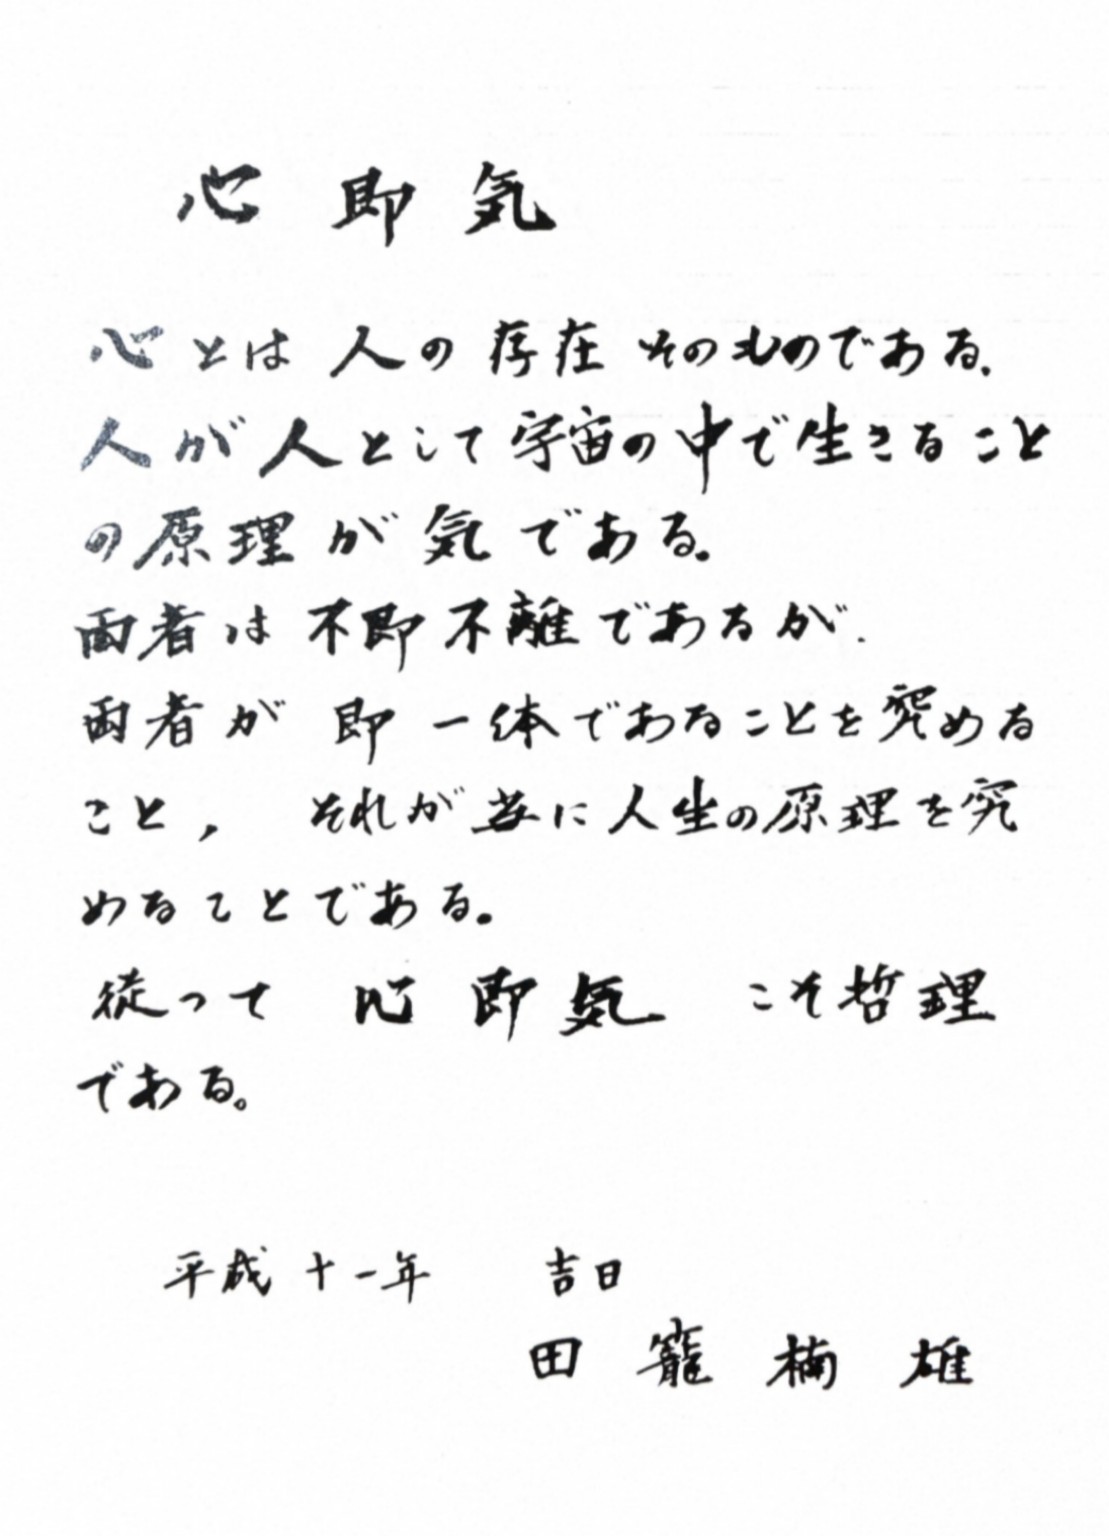 心即気
心とは人の存在そのものである.
人が人として宇宙の中で生きること
の原理が気である.
両者は不即不離であるが.
両者が即一体であることを究める
こと, それが共に人生の原理を究
めることである.
従って 心即気 こそ哲理
である。
平成十一年 吉日
田籠楠雄